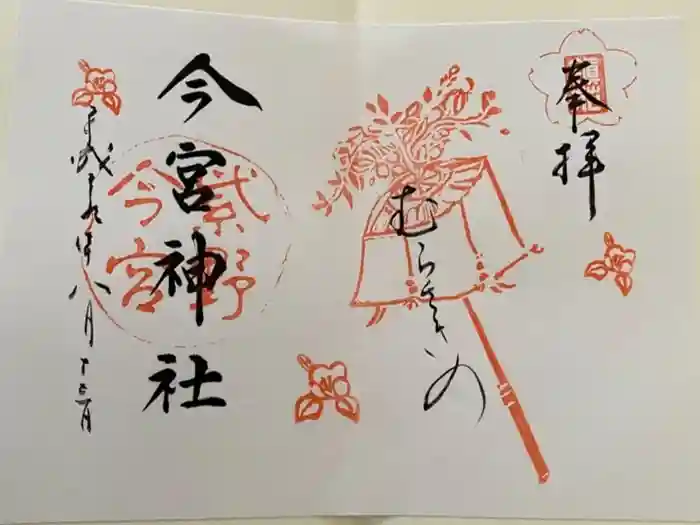 奉拝
むらさきの
今宮神社
紫野
今宮
平成二十九年八月十三日